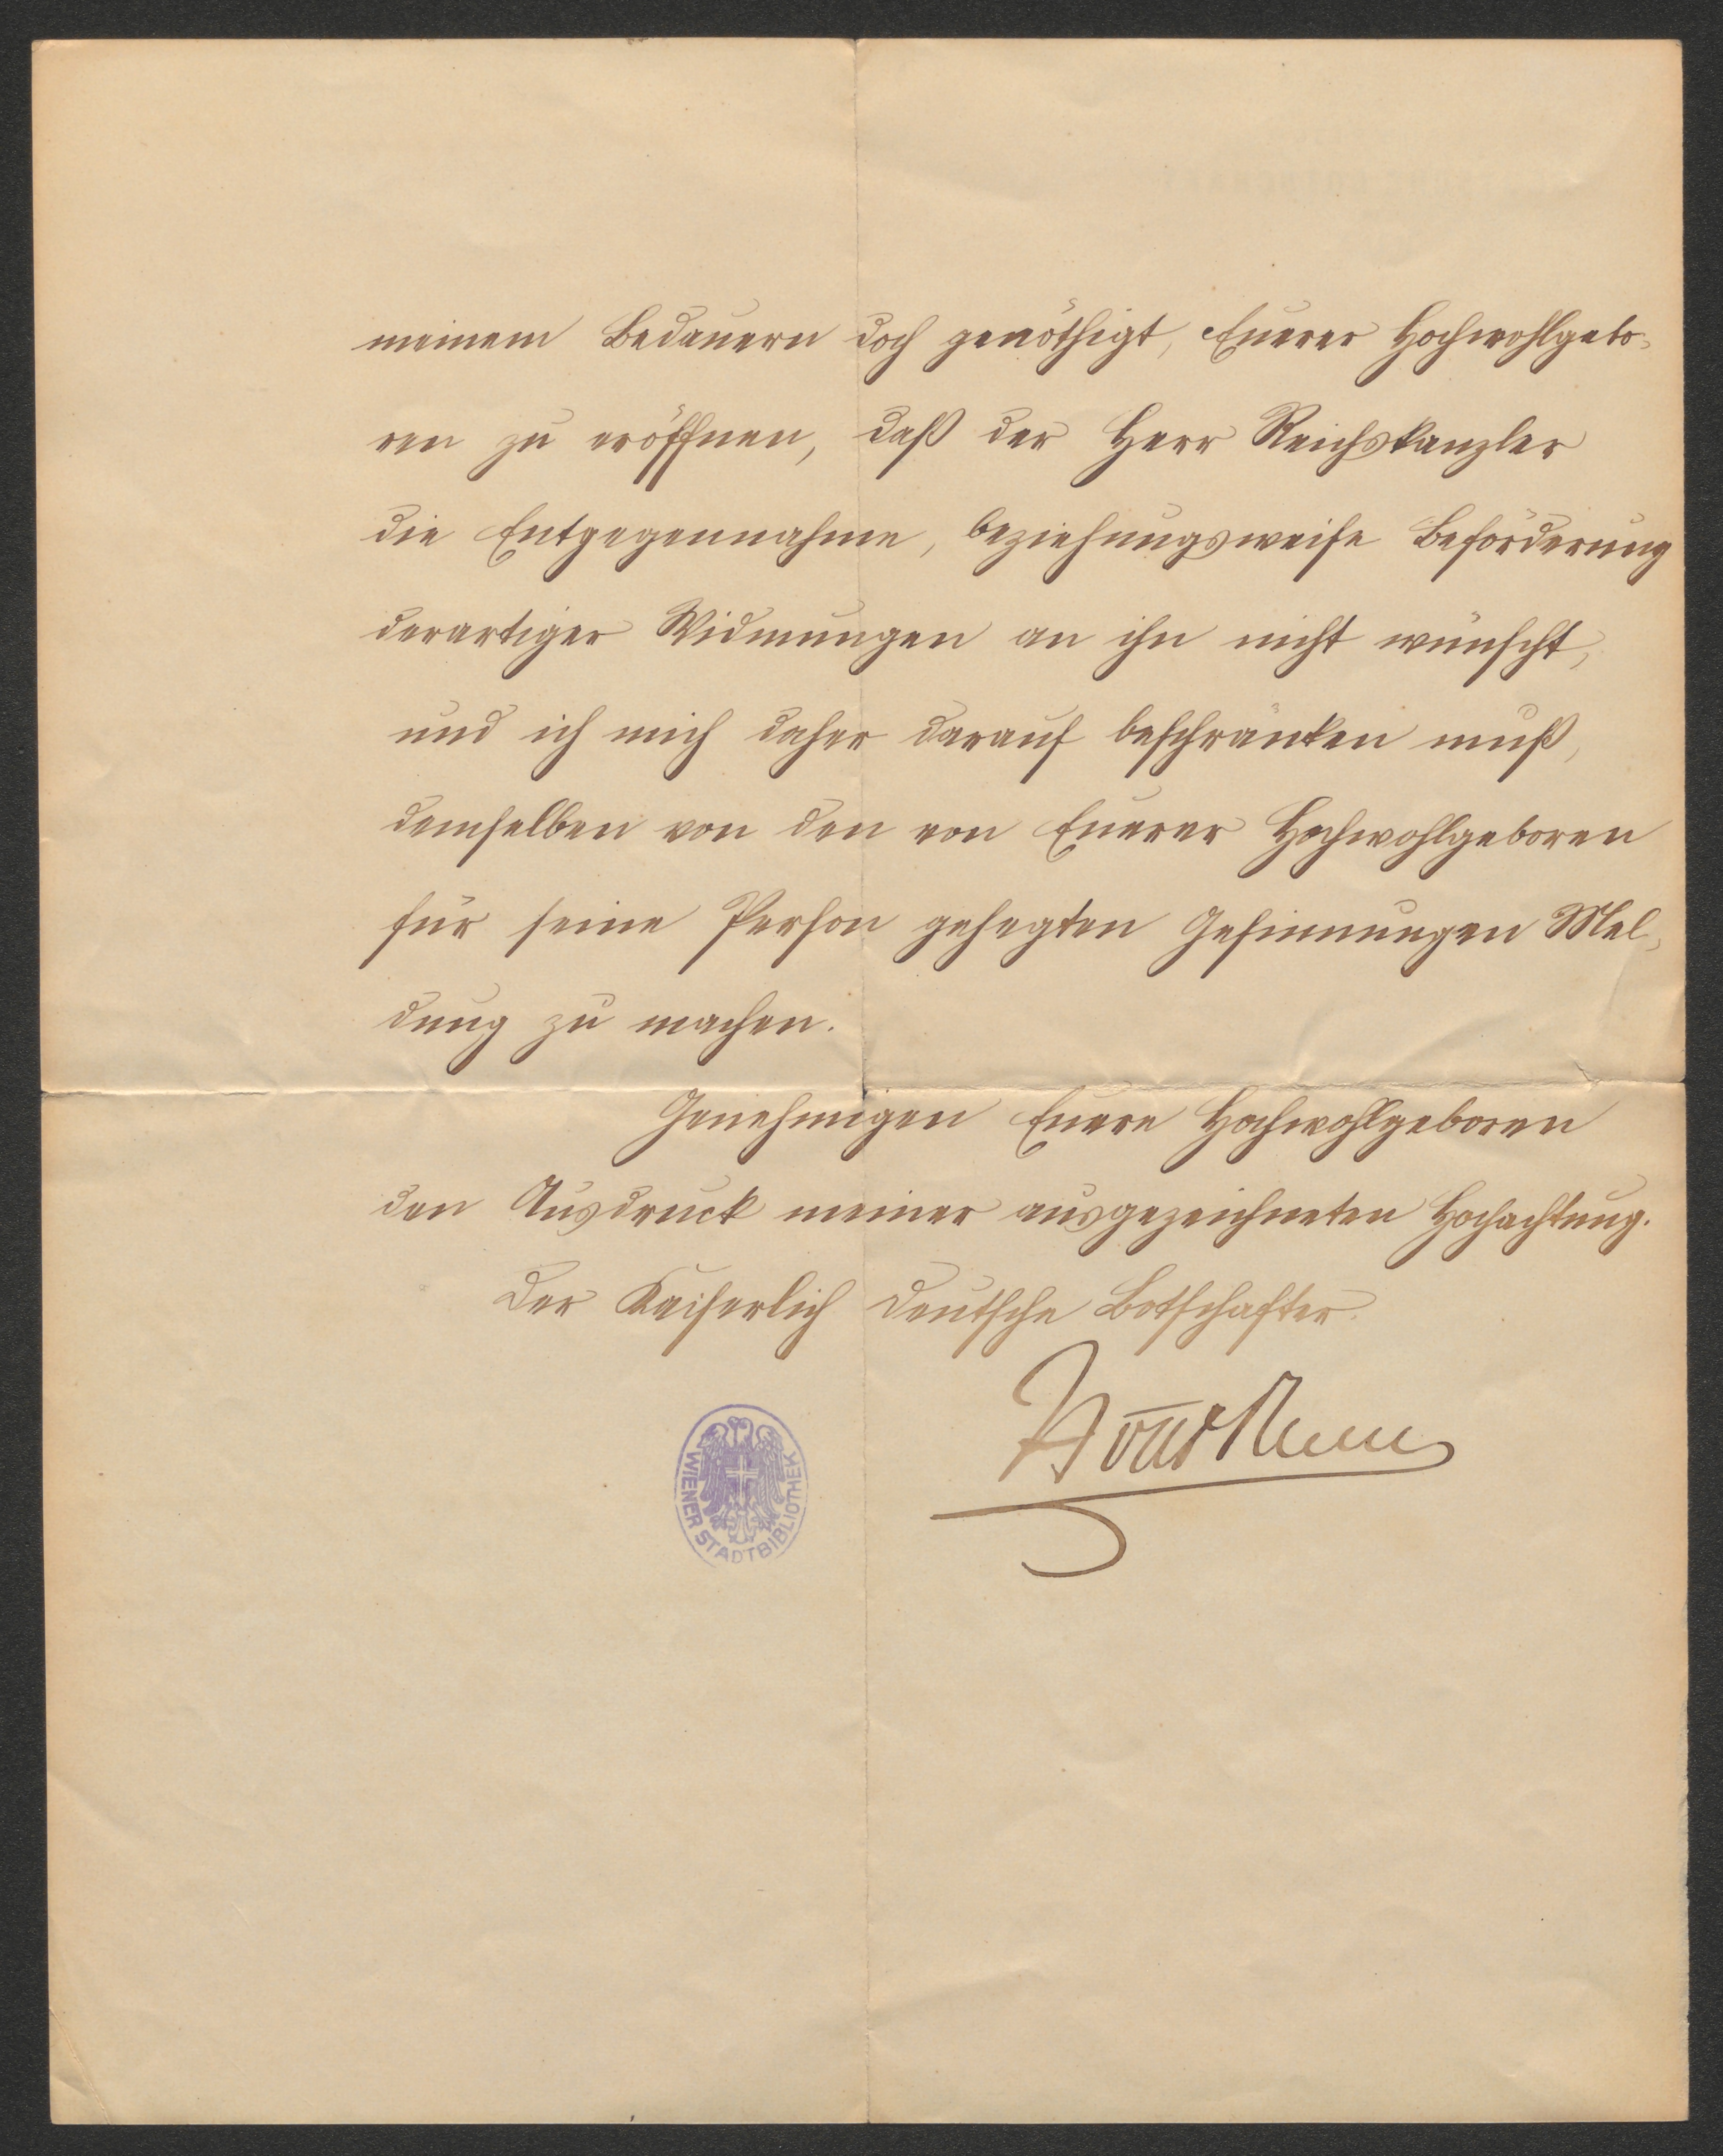 meinem Bedauern doch genöthigt, Euerer Hochwohlgebo-
ren zu eröffnen, daß der Herr Reichskanzler
die Entgegennahme, beziehungsweise Beförderung
derartiger Widmungen an ihn nicht wünscht,
und ich mich daher darauf beschränken muß,
demselben von den von Euerer Hochwohlgeboren
für seine Person gehegten Gesinnungen Mel-
dung zu machen.
Genehmigen Euere Hochwohlgeboren
den Ausdruck meiner ausgezeichneten Hochachtung.
Der Kaiserlich Deutsche Botschafter.
WIENER STADTBIBLIOTHEK